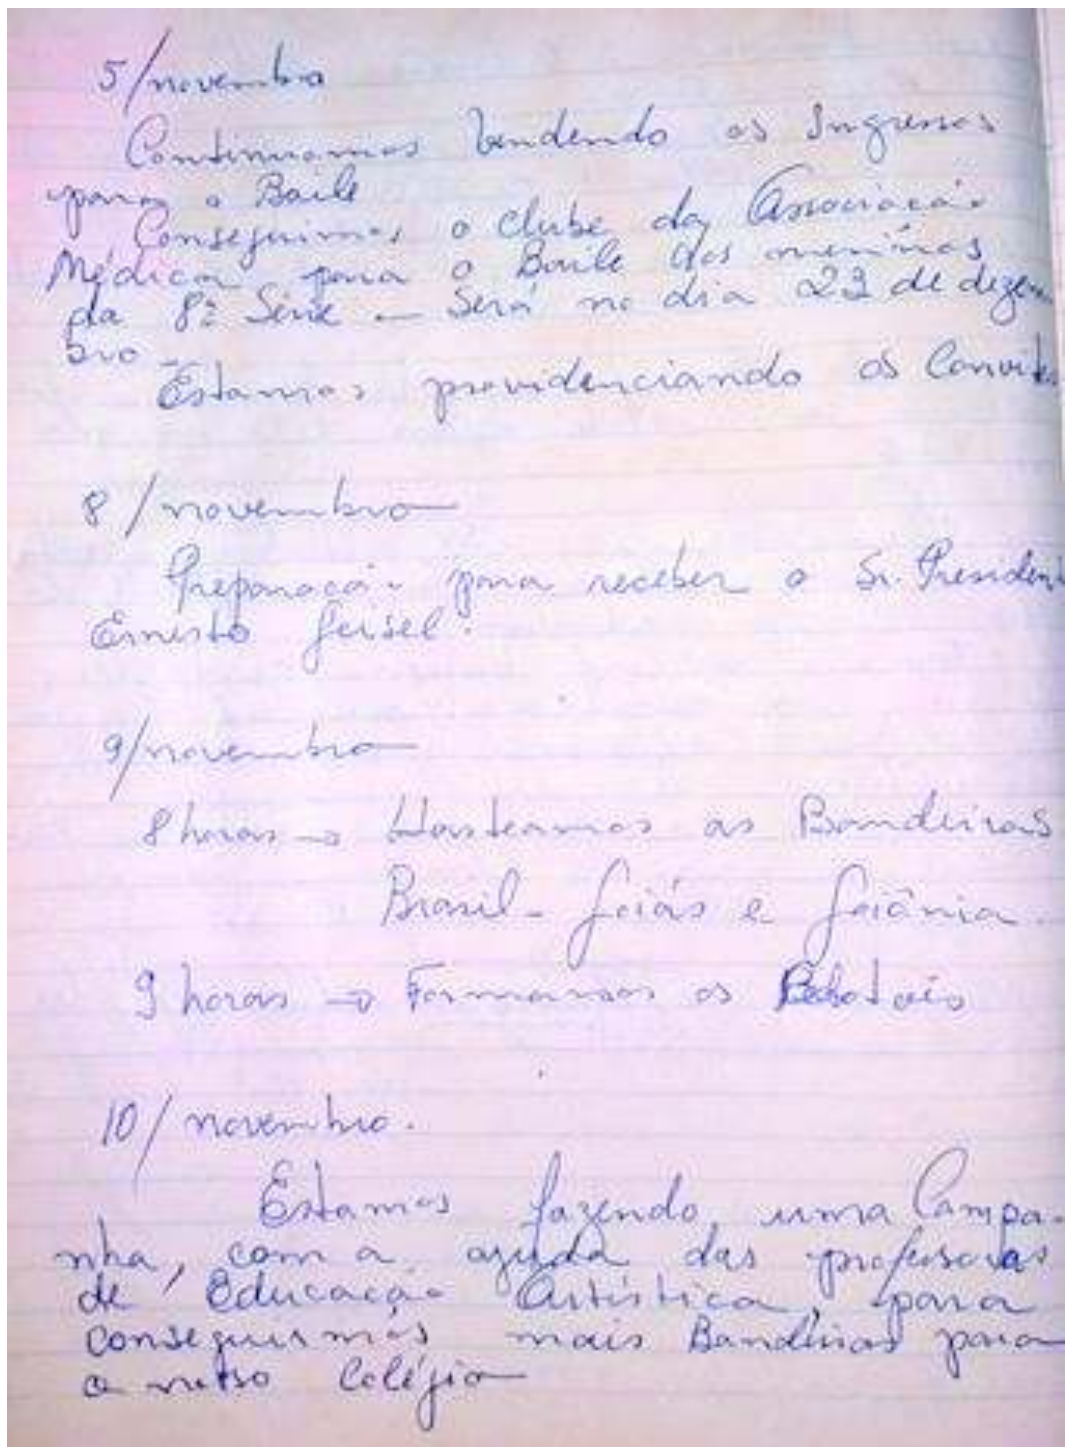 5/novembro
Continuamos Vendendo os Ingressos
para o Baile
Conseguimos o Clube da Associação
Médica para o Baile dos meninos
da 8ª Série - Será no dia 23 de dezem
bro -
Estamos providenciando os Convites
8/novembro
Preparação para receber o Sr. President
Ernesto Geisel.
9/novembro
8 horas → Hasteamos as Bandeiras
Brasil - Goiás e Goiânia.
9 horas → Formamos os
10/novembro.
Estamos fazendo uma Campa-
nha, com a ajuda das professoras
de Educação Artística, para
conseguirmos mais Bandeiras para
o nosso Colégio